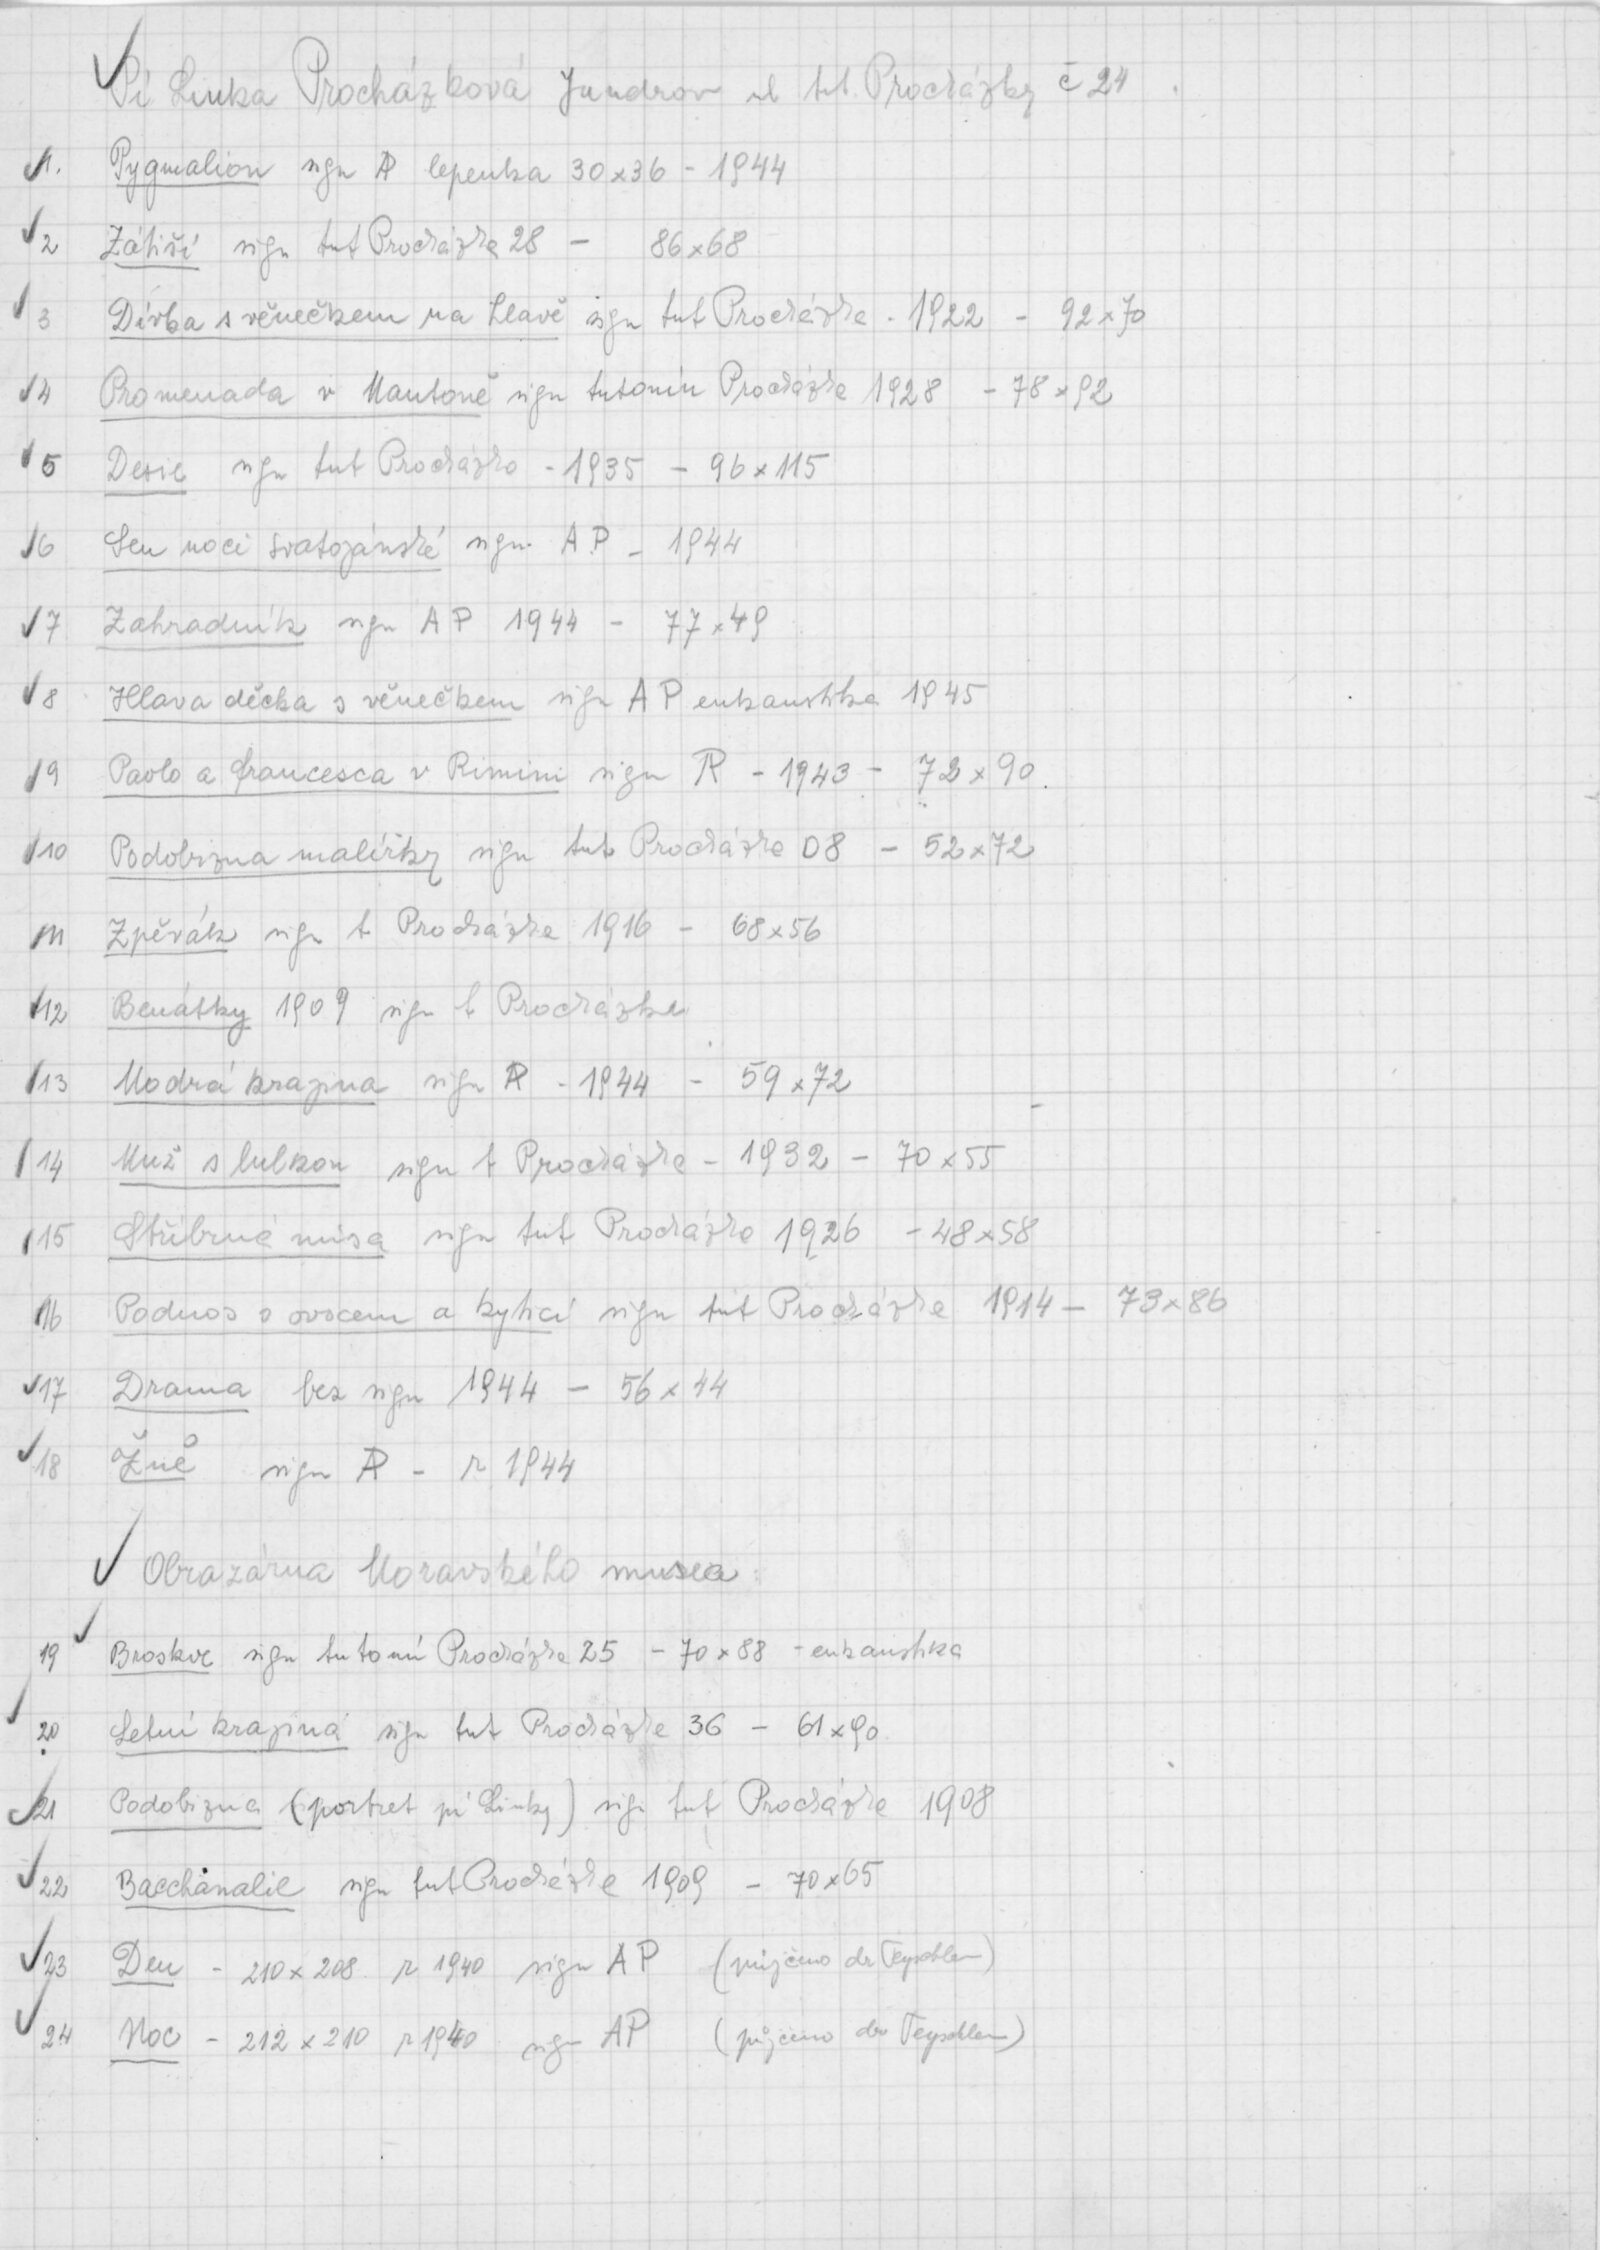 Pí Linka Procházková Jundrov ul Ant. Procházky č 24
1. Pygmalion sign AP lepenka 30x36 - 1944
2 Zátiší sign Ant Procházka 28 - 86x68
3 Dívka s věnečkem na hlavě sign Ant Procházka - 1922 - 92x70
4 Promenada v Mantoně sign Antonín Procházka 1928 - 78x92
5 sign Ant Procházka - 1935 - 96x115
6 Sen noci svatojánské sign. AP - 1944
7 Zahradník sign AP 1944 - 77x49
8 Hlava děcka s věnečkem sign AP enkaustika 1945
9 Paolo a Francesca v Rimini sign AP - 1943 - 72x90
10 Podobizna malířky sign Ant Procházka 08 - 52x72
11 Zpěvák sign A Procházka 1916 - 68x56
12 Benátky 1909 sign A Procházka
13 Modrá krajina sign AP - 1944 - 59x72
14 Muž s lulkou sign A Procházka - 1932 - 70x55
15 Stříbrná mísa sign Ant Procházka 1926 - 48x58
16 Podnos s ovocem a kyticí sign Ant Procházka 1914 - 73x86
17 Drama bez sign 1944 - 56x44
18 Žně sign AP - r 1944
Obrazárna Moravského musea:
19 Broskve sign Antonín Procházka 25 - 70x88 - enkaustika
20 Letní krajina sign Ant Procházka 36 - 61x90
21 Podobizna (portret pí Linky) sign Ant Procházka 1908
22 Bacchanalie sign Ant Procházka 1909 - 70x65
23 Den - 210x208 r 1940 sign AP (půjčeno dr Teyschlem)
24 Noc - 212x210 r 1940 sign AP (půjčeno dr Teyschlem)